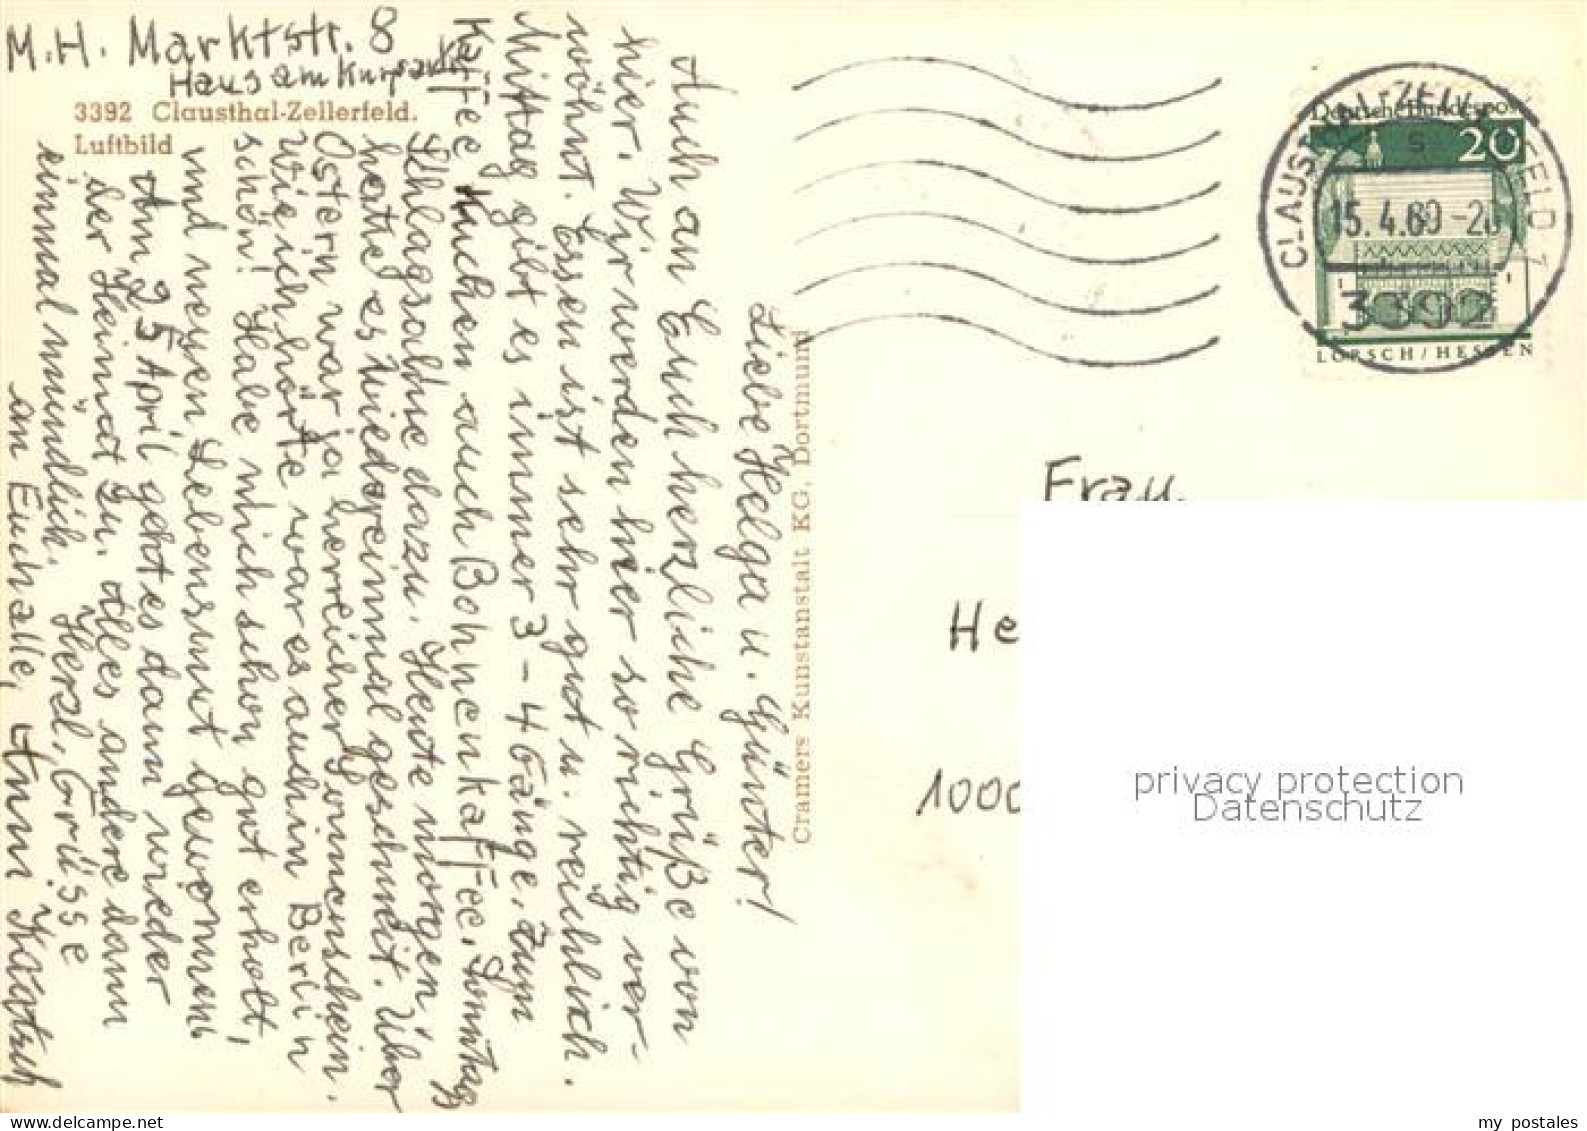 M.H. Marktstr. 8
Haus am Kurpark
3392 Clausthal-Zellerfeld.
Luftbild
Liebe Helga u. Günter!
Auch an Euch herzliche Grüße von
hier. Wir werden hier so richtig ver-
wöhnt. Essen ist sehr gut u. reichlich.
Mittag gibt es immer 3-4 Gänge. Zum
Kaffee Kuchen auch Bohnenkaffee. Sonntag
Schlagsahne dazu. Heute morgen,
hatte es wiedereinmal geschneit. Über
Ostern war ja herrlicher Sonnenschein.
Wie ich hörte war es auch in Berlin
schön! Habe mich schon gut erholt,
und neuen Lebensmut gewonnen.
Am 25 April geht es dann wieder
der Heimat zu. Alles andere dann
einmal mündlich. Herzl. Grüsse
an Euch alle, Anni
Cramers Kunstanstalt KG, Dortmund
Deutsche Bundespost
20
LORSCH/HESSEN
CLAUSTHAL-ZELLERFELD 1
15.4.69-20
3392
Frau
He
1000
privacy protection
Datenschutz
my postales